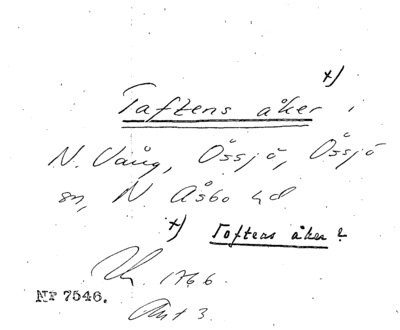 x)
Taftens åker,
N. Vång, Össjö, Össjö
sn, N Åsbo hd
x) Toftens åker?
1766.
Nr 7546.
Akt 3.